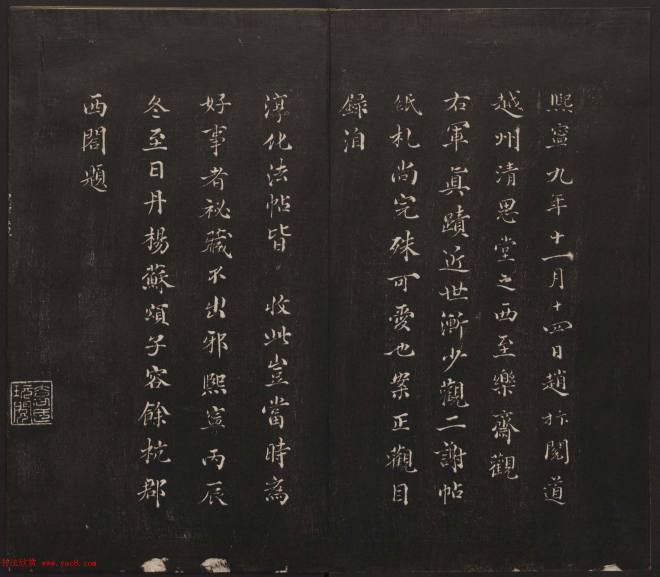 熙寧九年十一月十四日趙抃閱道
越州清思堂之西至樂齋觀
右軍真蹟近世漸少觀二謝帖
紙札尚完殊可愛也案正觀目
録洎
淳化法帖皆 收此豈當時為
好事者祕藏不出邪熙寧丙辰
冬至日丹楊蘇頌子容餘杭郡
西閣題
書法欣賞 www.yac8.com